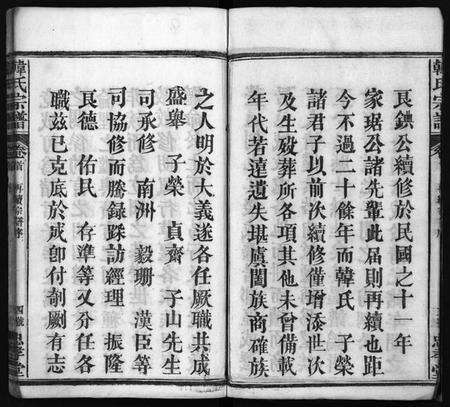 韓氏宗譜
艮鉷公續修於民國之十一年
家琚公諸先輩此屆則再續也距
今不過二十餘年而韓氏 子榮
諸君子以前次續修僅增添世次
及生歿葬所各項其他未曾備載
年代若遠遺失堪虞闔族商確族
之人明於大義遂各任厥職共成
盛舉 子榮 貞齋 子山先生
司承修 南洲 毅珊 漢臣等
司協修而謄錄踩訪經理 振隆
艮德 佑民 存準等又分任各
職茲已克底於成即付剞劂有志
韓氏宗譜 卷首 再續宗譜序 忠孝堂